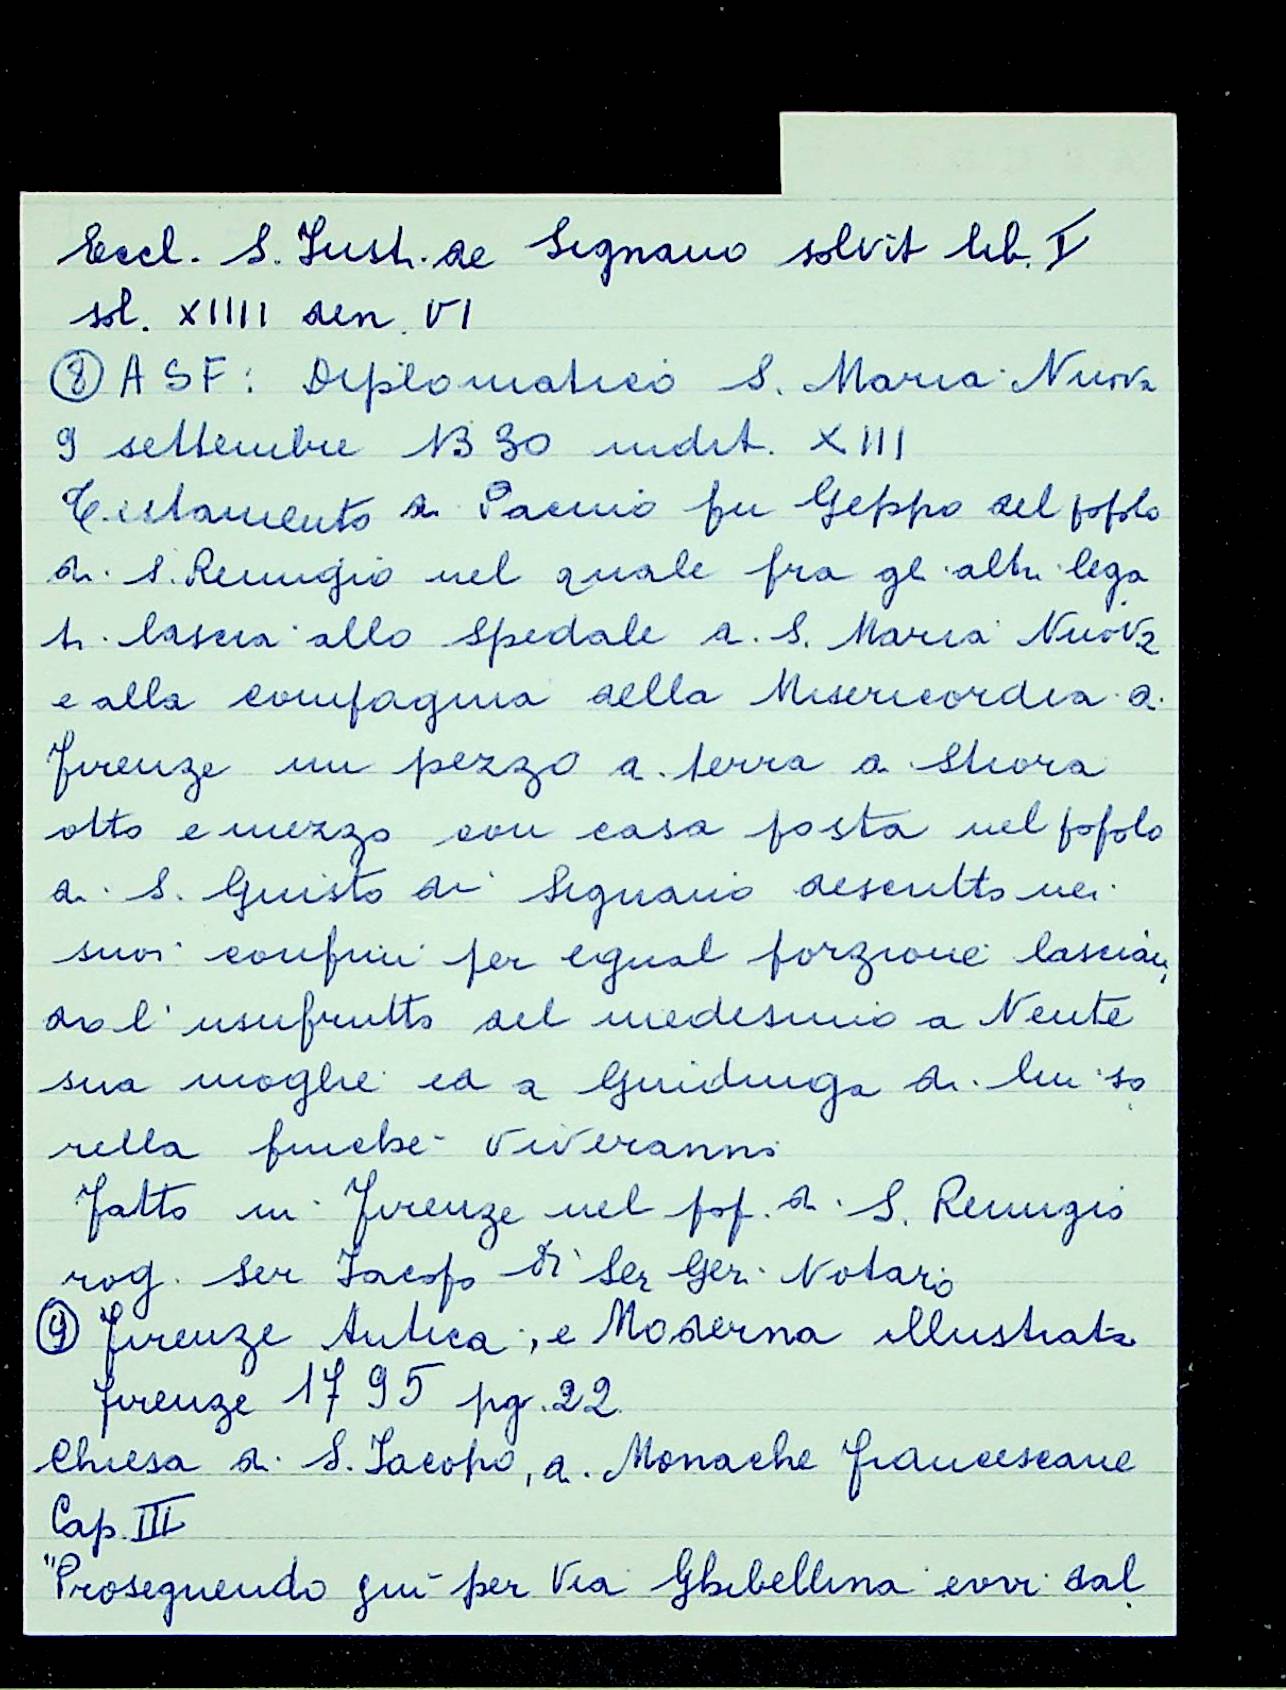 Eccl. S. Just. de Signano solvit lib. V
sol. XIIII den. VI
⑧ ASF: Diplomatico S. Maria Nuova
9 settembre 1330 indit. XIII
Testamento di Pacino fu Geppo del popolo
di S. Remigio nel quale fra gli altri lega
ti lascia allo Spedale di S. Maria Nuova
e alla compagnia della Misericordia di
Firenze un pezzo di terra a Stiora
otto e mezzo con casa posta nel popolo
di S. Giusto di Signano descritto nei
suoi confini per egual porzione lascian,
do l'usufrutto del medesimo a Nente
sua moglie ed a Guiduga di lui so
rella finché viveranno
Fatto in Firenze nel pop. di S. Remigio
rog. Ser Jacopo di Ser Geri Notaro
⑨ Firenze Antica, e Moderna illustrata
Firenze 1795 pg. 22
Chiesa di S. Jacopo, di Monache Francescane
Cap. III
"Proseguendo qui per Via Ghibellina evvi dal